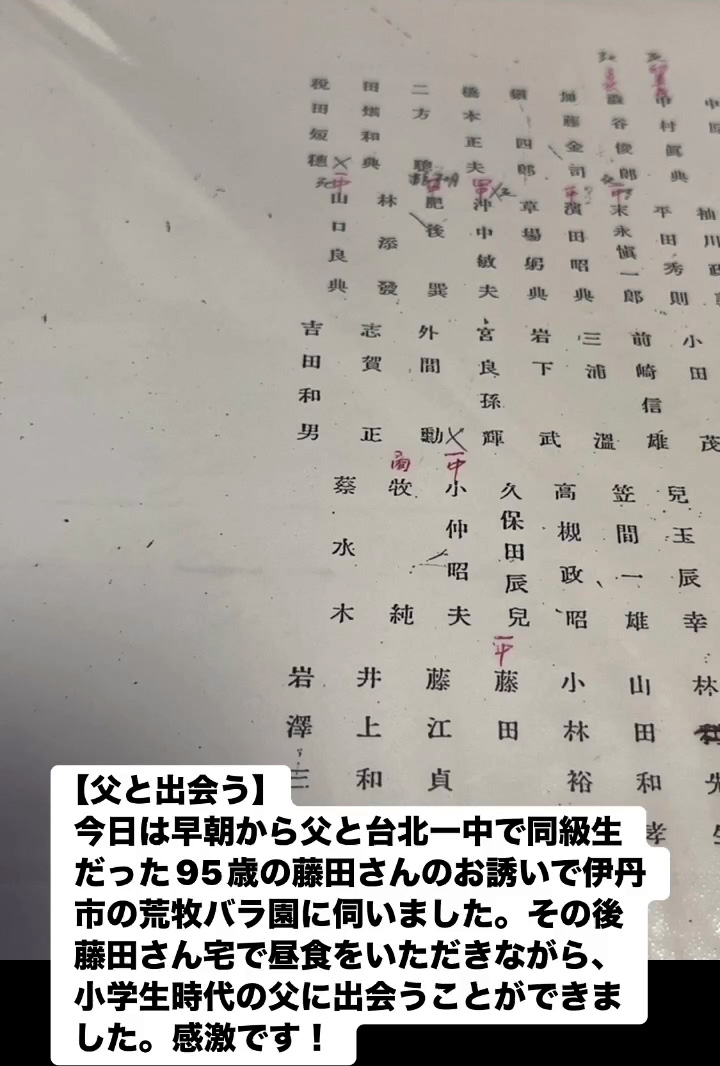 中村眞典
澁谷俊郎
加藤金司
四郎
橋本正夫
二方聰
和典
税田短穗
平田秀則
一中
末永愼一郎
濱田昭典
草場躬典
沖中敏夫
肥後巽
林添發
一中
山口良典
小田茂
前崎信雄
三浦溫
岩下武
宮良孫輝
外間勳
志賀正
吉田和男
兒玉辰幸
笠間一雄
高槻政昭
久保田辰兒
一中
小仲昭夫
牧純
蔡水木
林
山田和孝
小林裕
一中
藤田
藤江貞
井上和
岩澤三
【父と出会う】
今日は早朝から父と台北一中で同級生
だった95歳の藤田さんのお誘いで伊丹
市の荒牧バラ園に伺いました。その後
藤田さん宅で昼食をいただきながら、
小学生時代の父に出会うことができま
した。感激です！